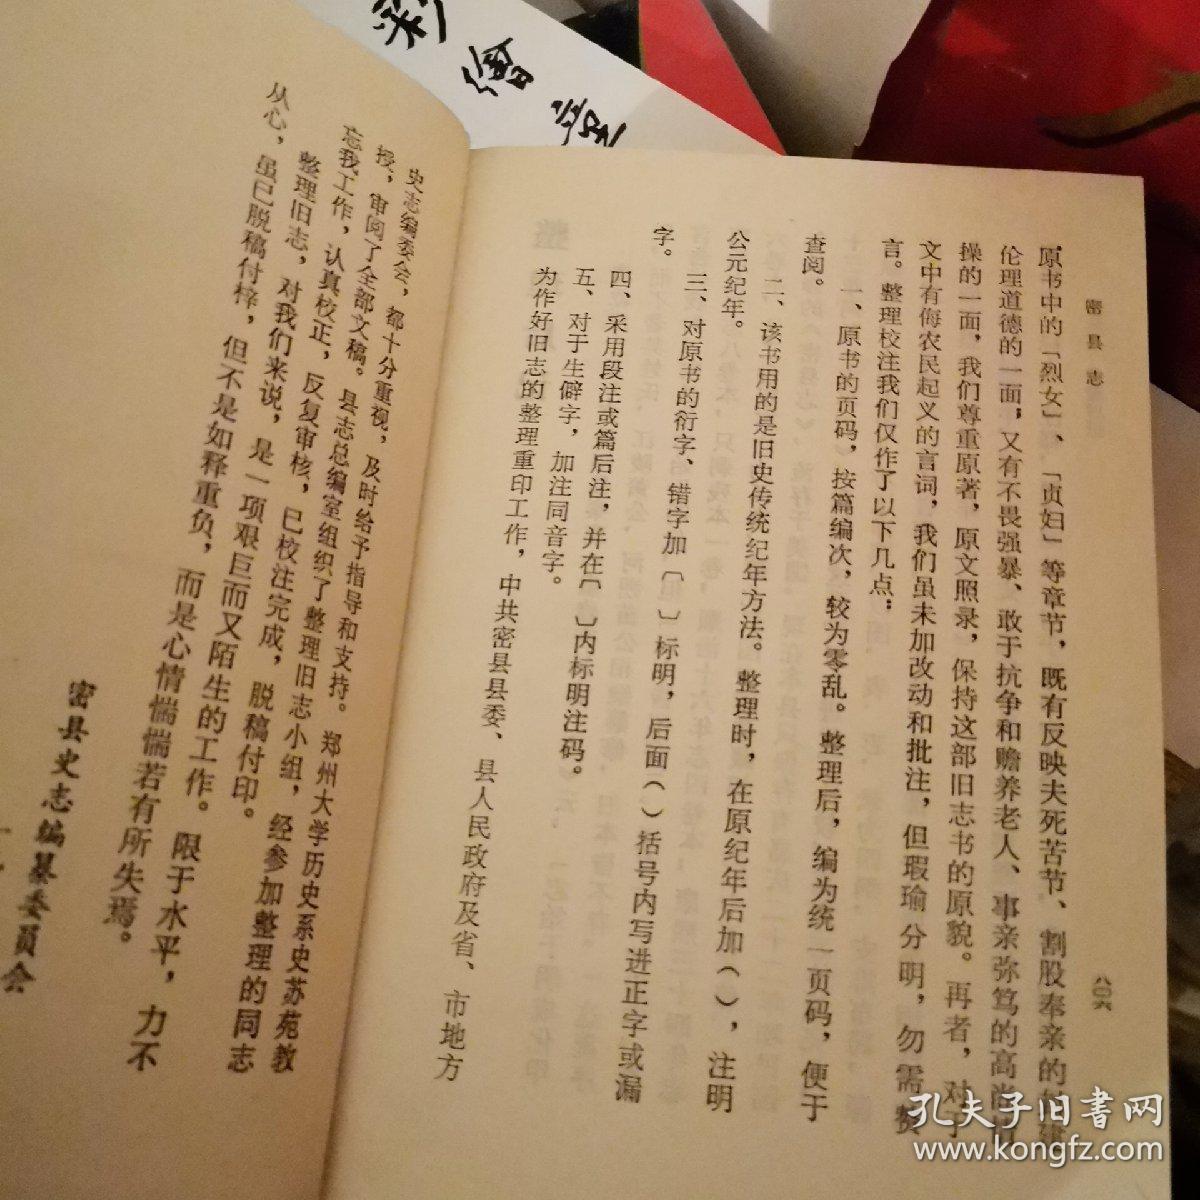 彩
繪
密县志
八〇六
原书中的「烈女」、「贞妇」等章节，既有反映夫死苦节、割股奉亲的
伦理道德的一面，又有不畏强暴、敢于抗争和赡养老人、事亲弥笃的高尚
操的一面，我们尊重原著，原文照录，保持这部旧志书的原貌。再者，对于
文中有侮农民起义的言词，我们虽未加改动和批注，但瑕瑜分明，勿需赘
言。整理校注我们仅作了以下几点：
一、原书的页码，按篇编次，较为零乱。整理后，编为统一页码，便于
查阅。
二、该书用的是旧史传统纪年方法。整理时，在原纪年后加（），注明
公元纪年。
三、对原书的衍字、错字加〔〕标明，后面（）括号内写进正字或漏
字。
四、采用段注或篇后注，并在〔〕内标明注码。
五、对于生僻字，加注同音字。
为作好旧志的整理重印工作，中共密县县委、县人民政府及省、市地方
史志编委会，都十分重视，及时给予指导和支持。郑州大学历史系史苏苑教
授，审阅了全部文稿。县志总编室组织了整理旧志小组，经参加整理的同志
忘我工作，认真校正，反复审核，已校注完成，脱稿付印。
整理旧志，对我们来说，是一项艰巨而又陌生的工作。限于水平，力不
从心，虽已脱稿付梓，但不是如释重负，而是心情惴惴若有所失焉。
密县史志编纂委员会
孔夫子旧书网
www.kongfz.com